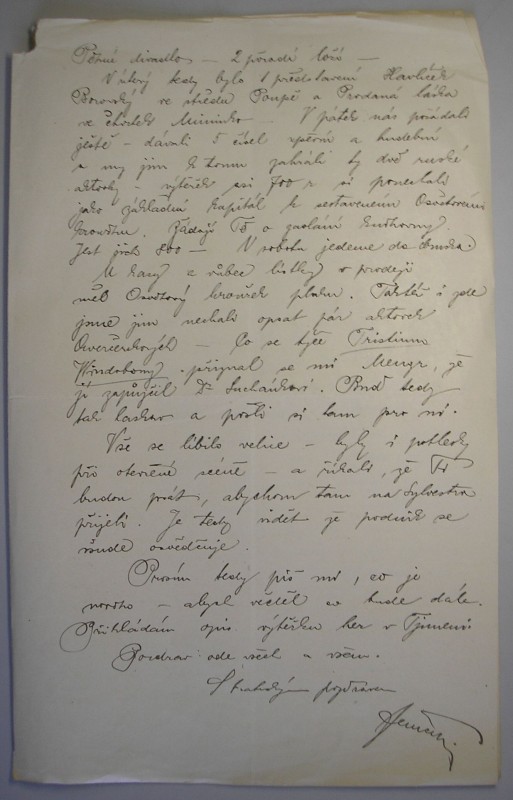 Pěkné divadlo — 2 pořadí loží —
V úterý tedy bylo 1 představení Havlíček
Borovský ve středu Poupě a Prodaná láska
ve čtvrtek Miminko — V pátek nás požádali
ještě — dávali 5 čísel zpěvní a hudební
a my jim k tomu zahráli ty dvě ruské
aktovky — výtěžek asi 700 r si ponechali
jako základní kapitál k sestavení Osvětového
kroužku. Žádají Tě o zaslání knihovny.
Jest jich 800 — V sobotu jedeme do
U kasy a vůbec lístky v prodeji
měl Osvětový kroužek plném. Taktéž i zde
jsme jim nechali opsat pár aktovek
— Co se týče Tristium
Vindobony přiznal se mi Mengr, že
ji zapůjčil Dr. Buď tedy
tak laskav a pošli si tam pro ni.
Vše se líbilo velice — byly i potlesky
při otevřené scéně — a říkali, že Tě
budou prosit, abychom tam na Sylvestra
přijeli. Je tedy vidět že podnik se
všude osvědčuje.
Prosím tedy piš mi, co je
nového — abych věděl co bude dále.
Přikládám opis výtěžku her v
Pozdrav ode všech a všem.
S bratrským pozdravem